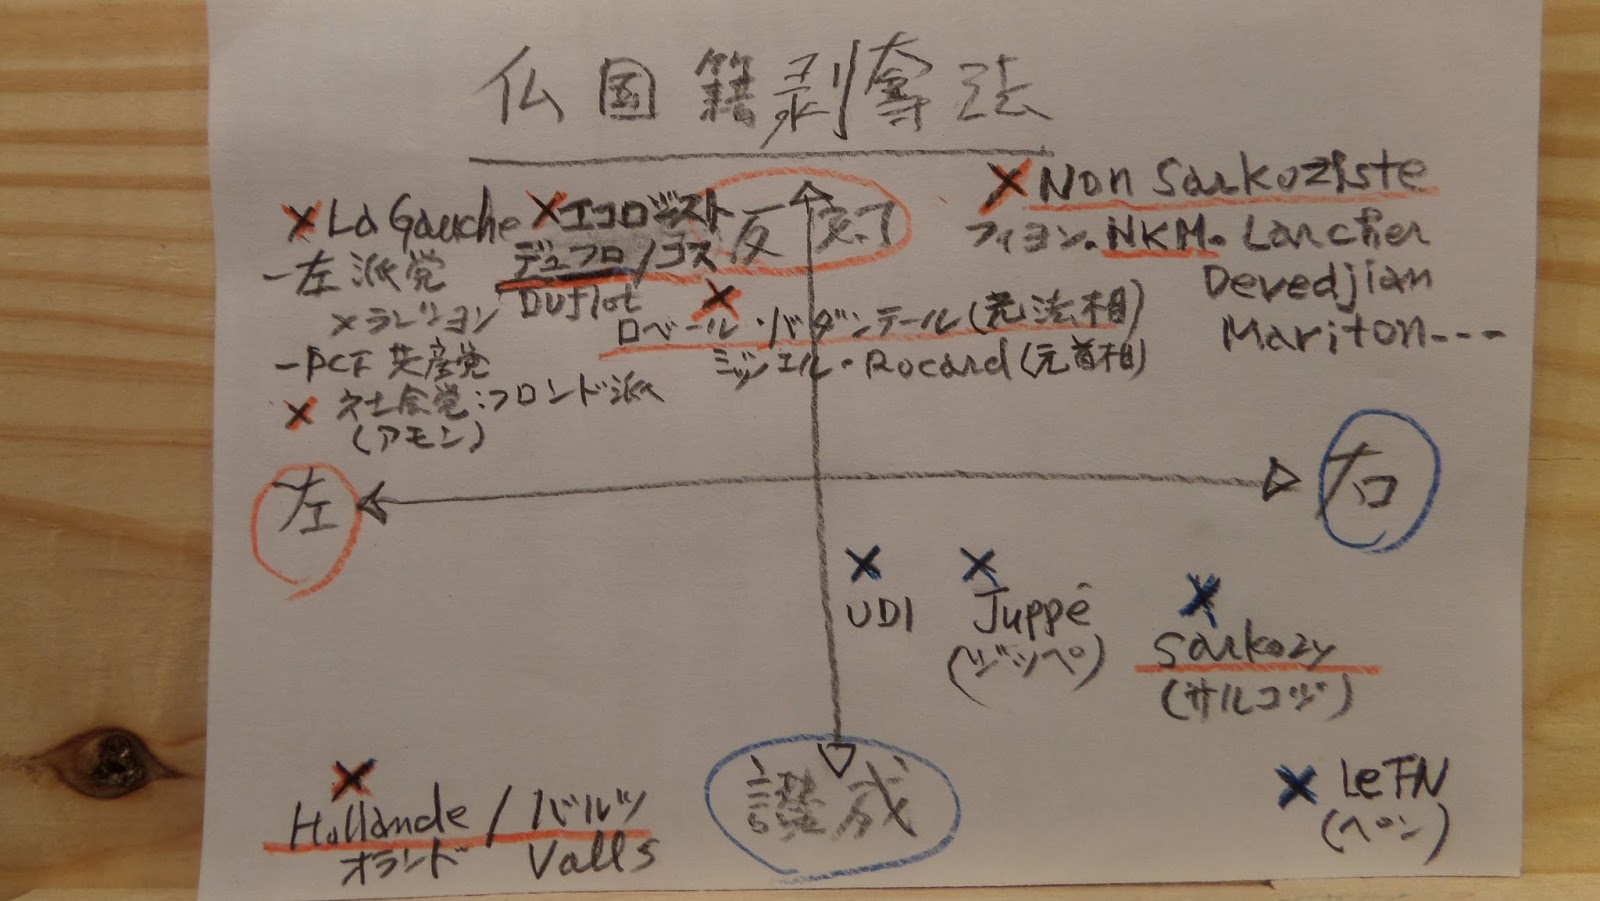 仏国籍剥奪法
反対
× La Gauche
－左派党
×ラレション
－PCF 共産党
× 社会党:フロンド派
(アモン)
×エコロジスト
デュフロ/コス
Duflot
×
ロベール・バダンテール(元法相)
ミッシェル・Rocard(元首相)
× Non Sarkoziste
フィヨン. NKM. Larcher
Devedjian
Mariton---
左
右
×
UDI
×
Juppé
(ジッペ)
×
Sarkozy
(サルコジ)
×
Hollande / バルツ
オランド Valls
讃成
× Le FN
(ペン)